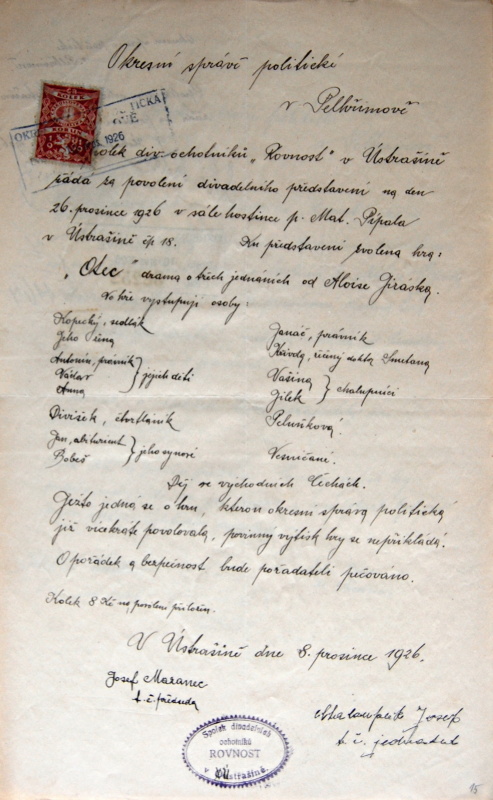 Okresní správě politické
v Pelhřimově
Spolek div. ochotníků „Rovnost" v Ústrašíně
žádá za povolení divadelního představení na den
26. prosince 1926 v sále hostince p. Mat. Pípala
v Ústrašíně čp 18. Ku představení zvolena hra:
„Otec" drama o třech jednáních od Aloise Jiráska.
Ve hře vystupují osoby:
Kopecký, sedlák
Jeho žena
Antonín, právník
Václav
Anna
} jejich děti
Divíšek, čtvrtláník
Jan, abiturient
Bobeš
} jeho synové
Janáč, právník
Kávda, řečený doktor Smetana
Vašina
Jílek
} chalupníci
Peluňková
Vesničané.
Děj ve východních Čechách.
Ježto jedná se o hru, kterou okresní správa politická
již vícekráte povolovala, povinný výtisk hry se nepřikládá.
O pořádek a bezpečnost bude pořadateli pečováno.
Kolek 8 Kč na povolení přiložen.
V Ústrašíně dne 8. prosince 1926.
Josef Mazanec
t. č. předseda
Josef
t. č. jednatel
Spolek divadelních
ochotníků
ROVNOST
v Ústrašíně.
1926
15